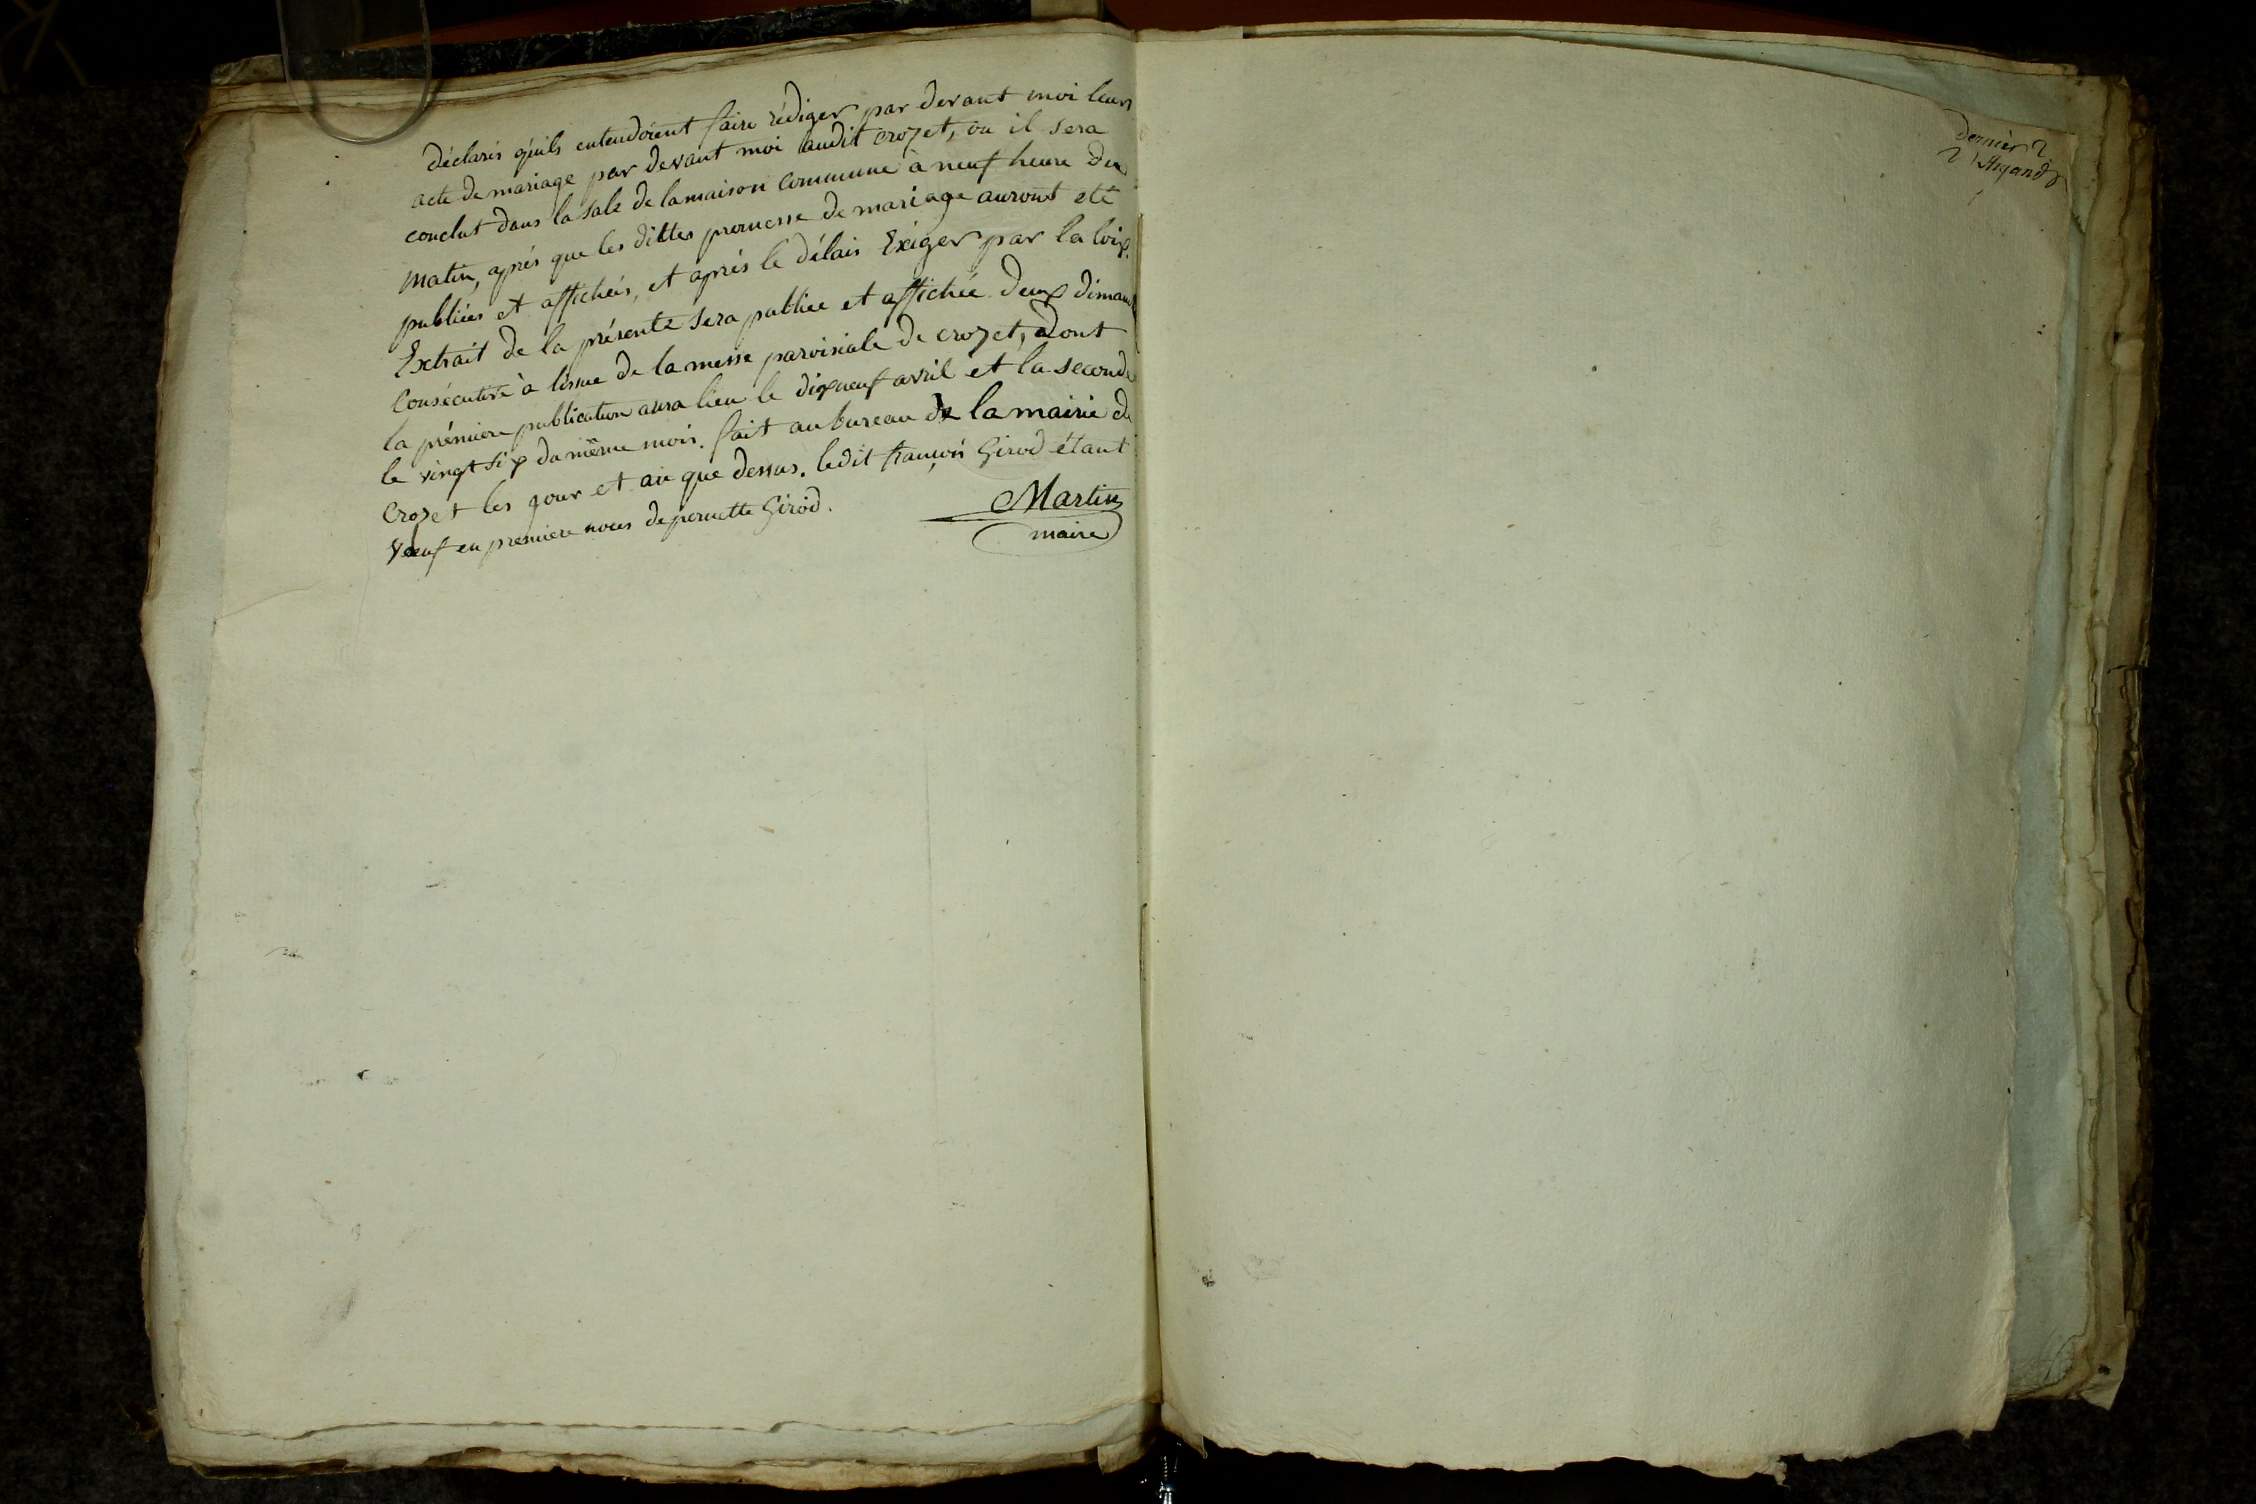 déclarés qu'ils entendoient faire rédiger par devant moi leurs
acte de mariage par devant moi audit crozet, ou il sera
conclut dans la sale de la maison commune à neuf heure du
matin, après que les dittes promesse de mariage auront eté
publiées et affichées, et après le délais Exiger par la loix.
Extrait de la présente sera publiee et affichée deux dimanc
consécutive à l'issue de la messe paroisiale de crozet, dont
la prémiere publication aura lieu le dixneuf avril et la seconde
le vingt six du même mois. fait au bureau de la mairie de
Crozet les jour et an que dessus. ledit françois Girod étant
Veuf en premiere noces de pernette Girod.
Martin
maire
dernier